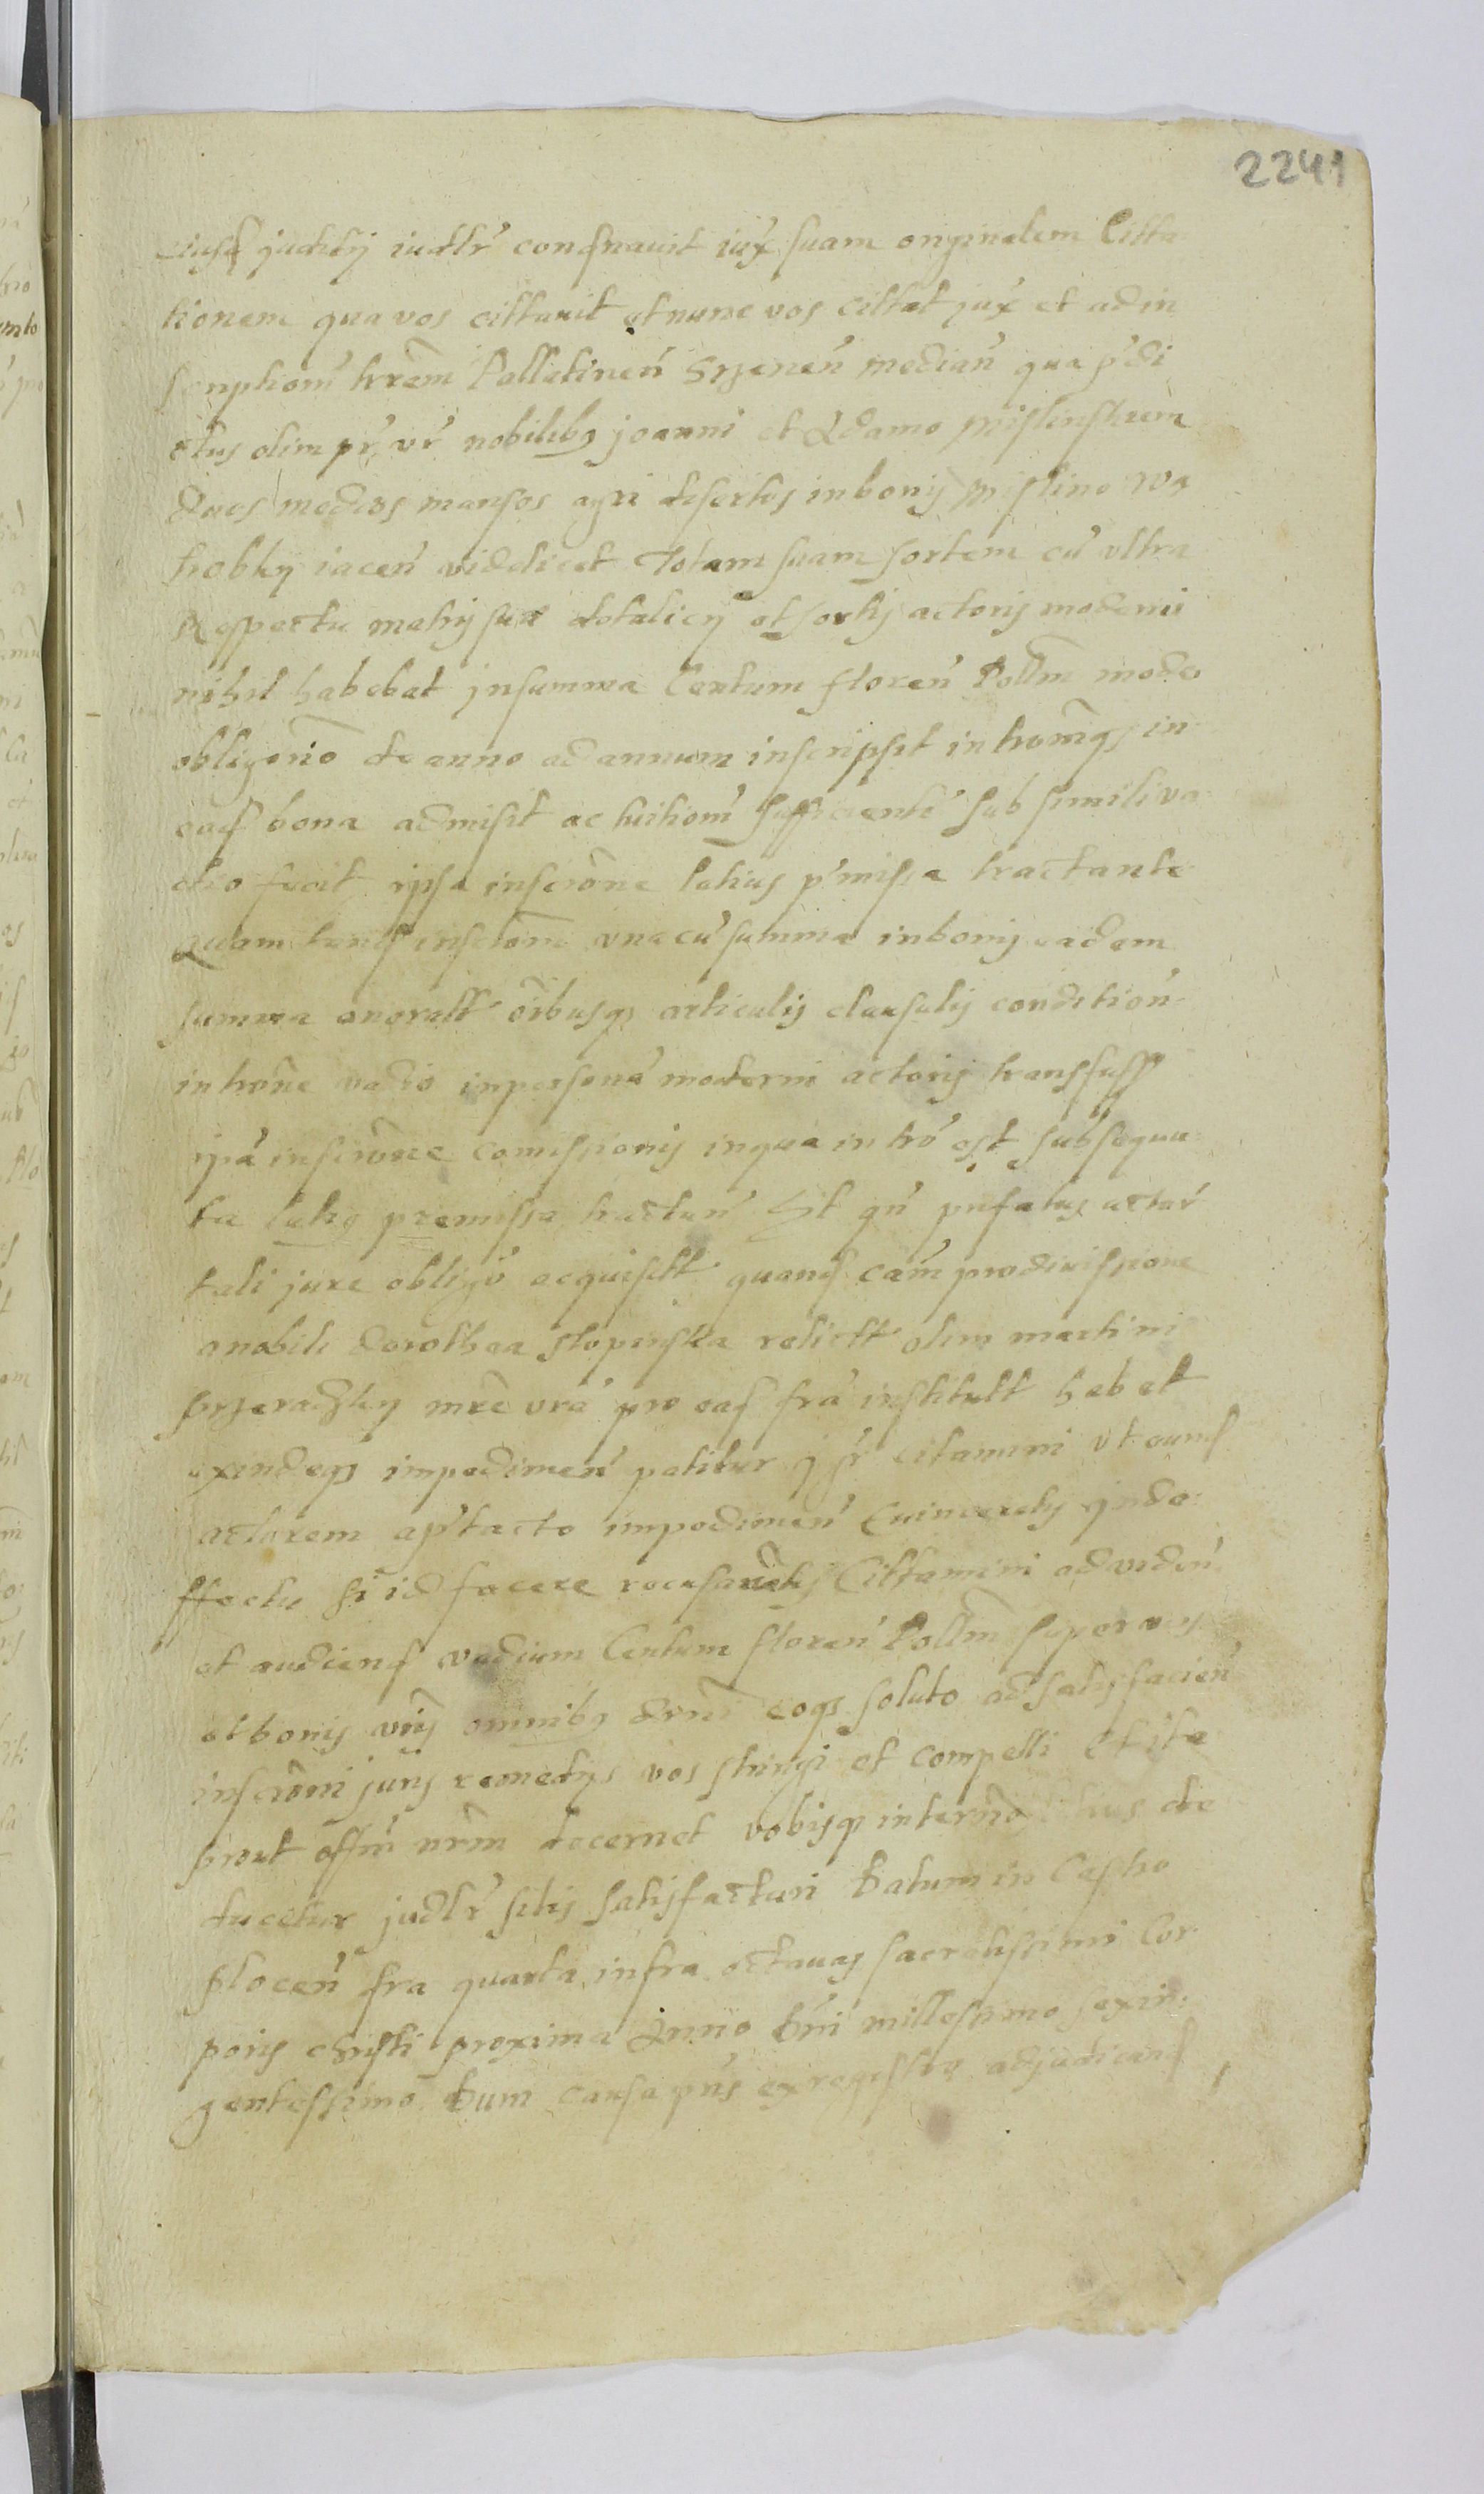 2241
eiusq̃ juditÿ iudlr̃ consruauit iux̃ suam originalem Citta
tionem qua vos cittauit et nunc vos cittat jux̃ et ad in
scriptionẽ trrẽm Pallatineñ Srzeneñ mediañ qua p̃di
ctus olim pr̃ vr̃ nobilibꝫ joanni et Adamo Mislinskiem
duos medios mansos agri desertos in bonis Mislino Wa
trobky iaceñ videlicet Totam suam sortem cũ vltra
Respectu matris sua dotalicÿ et sortis actoris moderni
nihil habebat in summa Centum floreñ Pollm̃ modo
obligorio de anno ad annum inscripsit intromq̃ in
easq̃ bona admisit ac tuitionẽ sufficientẽ sub simili va
dio fecit ipsa inscrõne latius p̃missa tractante
Quam tenq̃ inscrõm vna cũ summa in bonis eadem
summa onoratt oĩbusqꝫ articulis clausulis conditioñ
introm̃e vadio in personã moderni actoris transfuss
ipã inscrõne comissionis in qua intrõ est subsequu
ta latiꝫ premissa tractañ Et qñ p̃nfatus actor
tali jure obligõ acquisitt quanq̃ cam̃ pro diuissione
a nobili Dorothea Slopinska relictt olim martini
Przeradzky mr̃e vr̃a pro eaq̃ frã institutt habet
exindeqꝫ impedimeñ patitur q̃ fr̃ citamini vt eunq̃
actorem ap̃tacto impedimeñ Euinceretis inde
ffectu si id facere recusaretis Cittamini ad videñ
et audienq̃ vadium Centum floreñ Pollm̃ super vos
et bonis vr̃is omnibꝫ decrni eoqꝫ soluto ad satisfacieñ
inscrõni juris remedÿs vos stringi et compelli Et ita
prout offm̃ nrm̃ decernet vobisqꝫ in termino latius de
ducetur judlr̃ sitis satisfacturi Datum in Castro
Ploceñ fra quarta infra octauas sacratissimi Cor
poris christi proxima Anno Dñi millesimo sexin
gentessimo Dum causa pñs ex registro adjudicanq̃